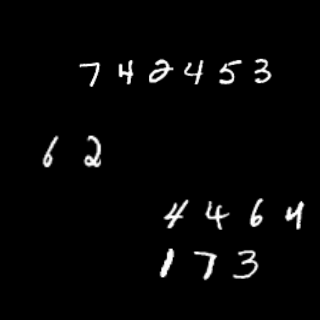 742453
62
4464
173